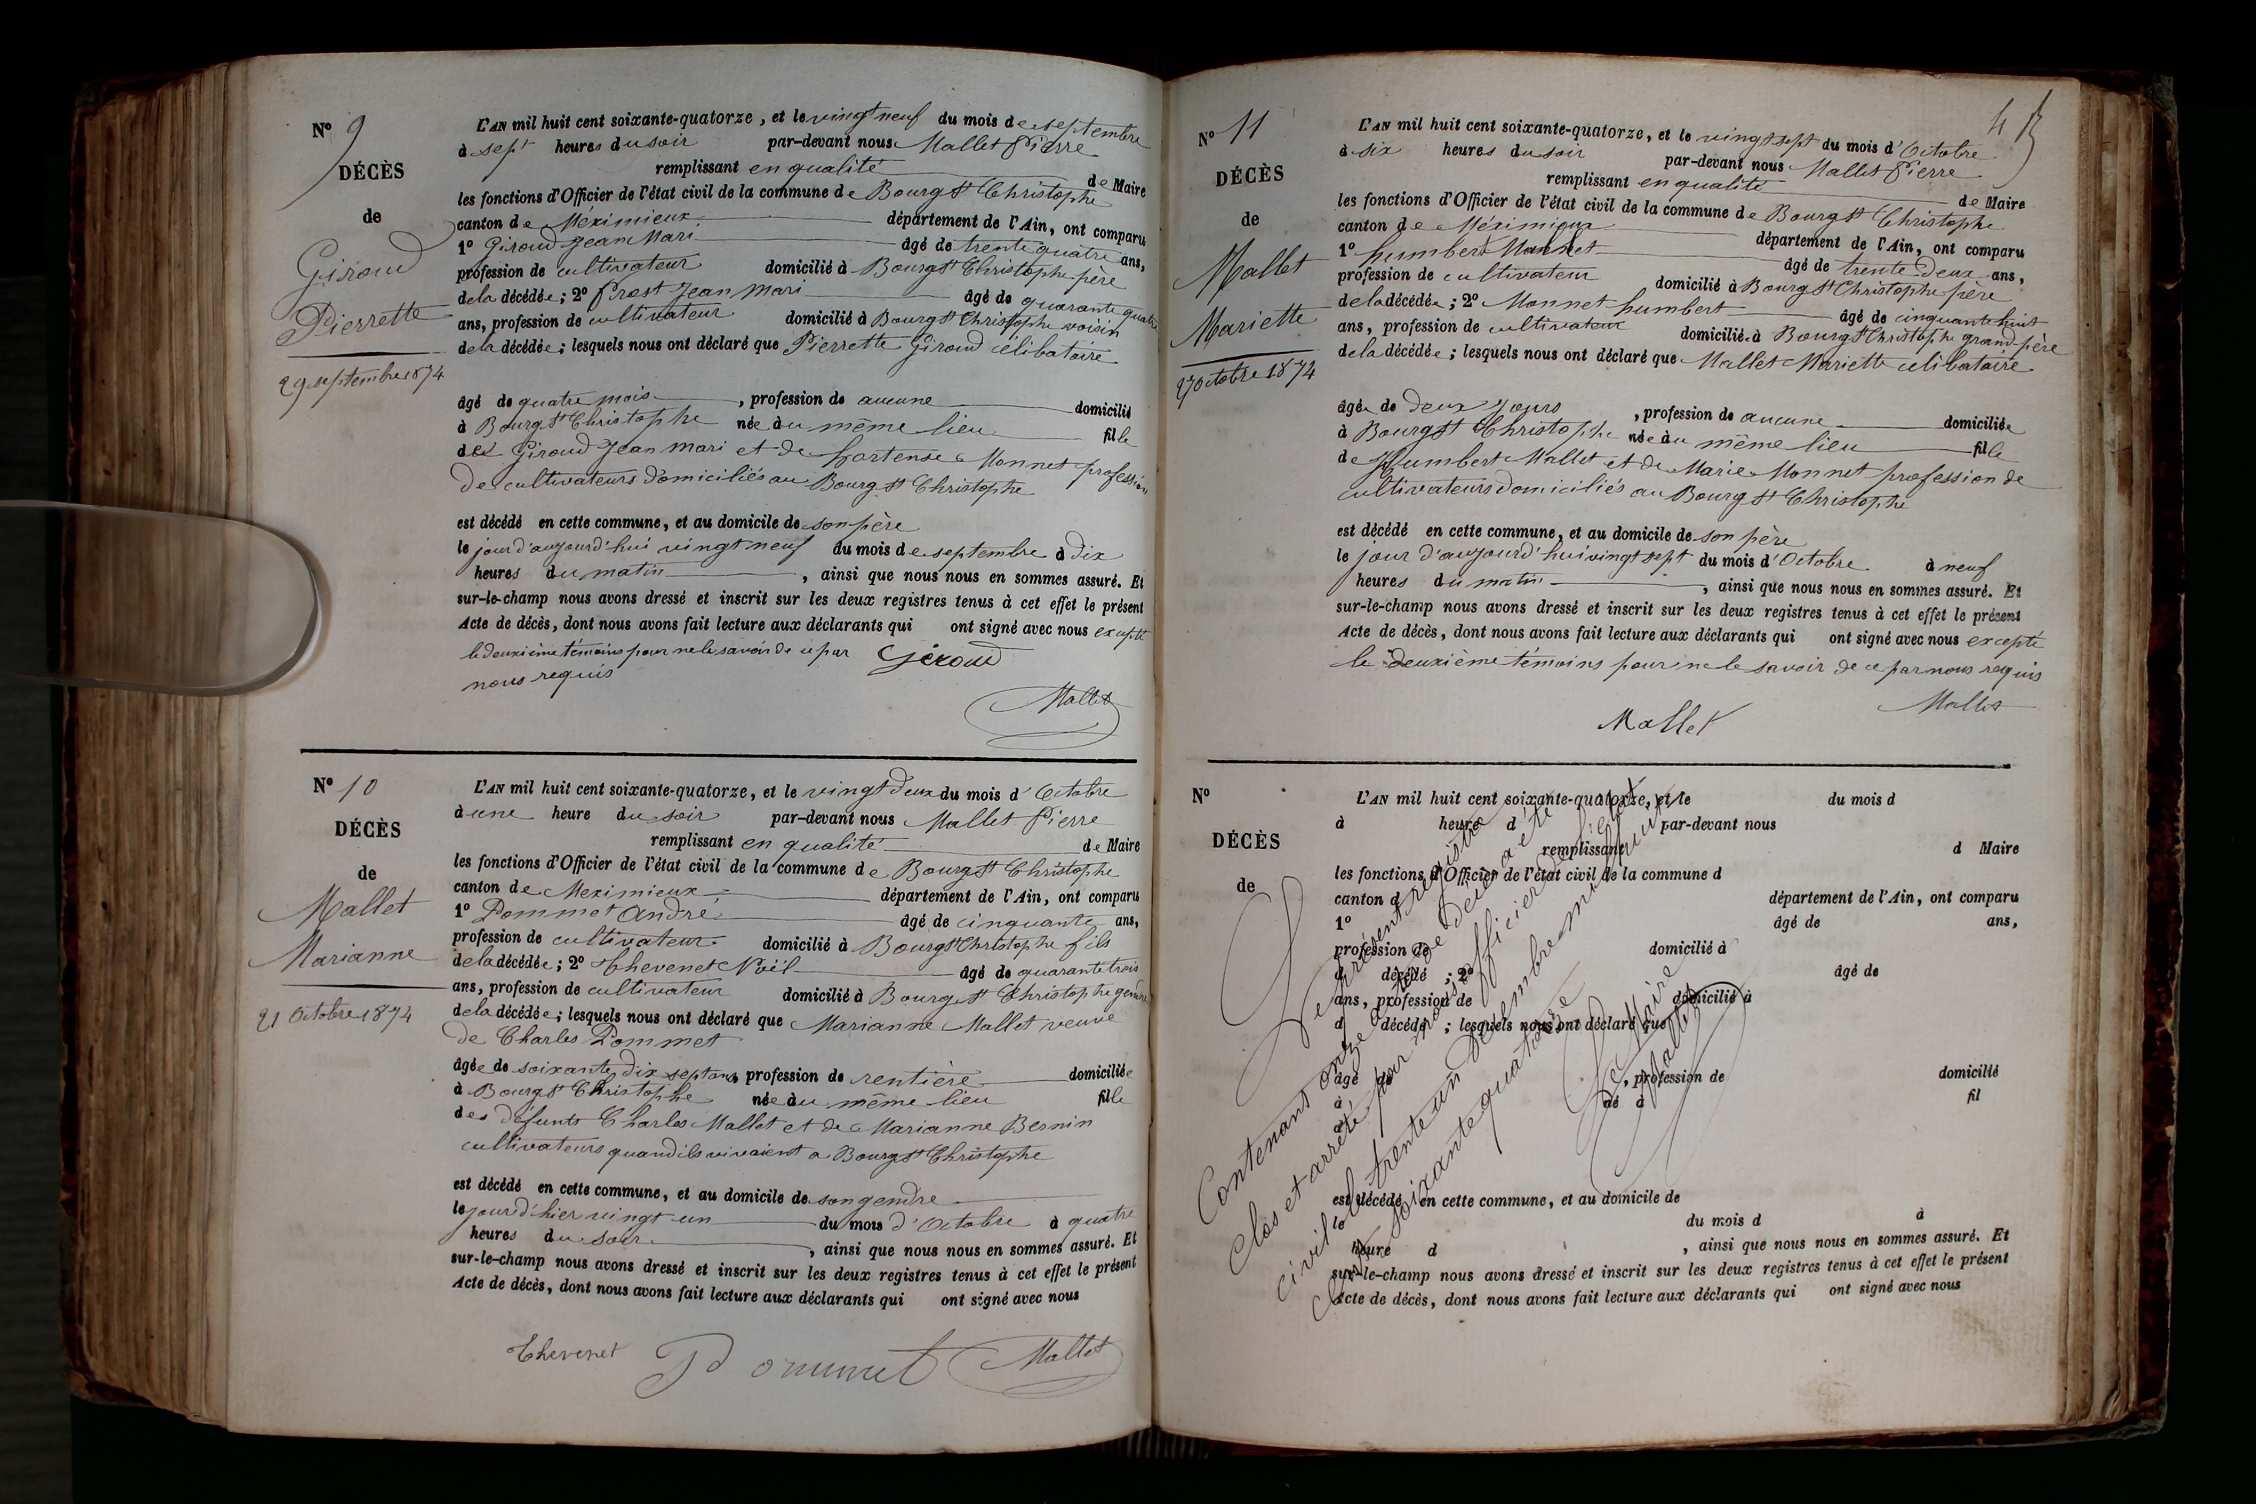 Nº 9
DÉCÈS
de
Giroud
Pierrette
29 septembre 1874
L'AN mil huit cent soixante-quatorze, et le vingt neuf du mois de septembre
à sept heures du soir par-devant nous Mallet Pierre
remplissant en qualité de Maire
les fonctions d'Officier de l'état civil de la commune de Bourg St Christophe
canton de Méximieux département de l'Ain, ont comparu
1º Giroud Jean Mari âgé de trente quatre ans,
profession de cultivateur domicilié à Bourg St Christophe père
de la décédée; 2º Prost Jean Mari âgé de quarante quatre
ans, profession de cultivateur domicilié à Bourg St Christophe voisin
de la décédée; lesquels nous ont déclaré que Pierrette Giroud célibataire
âgé de quatre mois, profession de aucune domicilié
à Bourg St Christophe née au même lieu fille
de Giroud Jean Mari et de hortense Monnet profession
de cultivateurs domiciliés au Bourg St Christophe
est décédé en cette commune, et au domicile de son père
le jour d'aujourd'hui vingt neuf du mois de septembre à dix
heures du matin, ainsi que nous nous en sommes assuré. Et
sur-le-champ nous avons dressé et inscrit sur les deux registres tenus à cet effet le présent
Acte de décès, dont nous avons fait lecture aux déclarants qui ont signé avec nous excepté
le deuxième témoins pour ne le savoir de ce par
nous requis
Giroud
Mallet
Nº 10
DÉCÈS
de
Mallet
Marianne
21 Octobre 1874
L'AN mil huit cent soixante-quatorze, et le vingt deux du mois d'Octobre
à une heure du soir par-devant nous Mallet Pierre
remplissant en qualité de Maire
les fonctions d'Officier de l'état civil de la commune de Bourg St Christophe
canton de Meximieux département de l'Ain, ont comparu
1º Pommet André âgé de cinquante ans,
profession de cultivateur domicilié à Bourg St Christophe fils
de la décédée; 2º Thevenet Noël âgé de quarante trois
ans, profession de cultivateur domicilié à Bourg St Christophe gendre
de la décédée; lesquels nous ont déclaré que Marianne Mallet veuve
de Charles Pommet
âgée de soixante dix sept ans, profession de rentière domiciliée
à Bourg St Christophe née au même lieu fille
des défunts Charles Mallet et de Marianne Bernin
cultivateurs quand ils vivaient a Bourg St Christophe
est décédé en cette commune, et au domicile de son gendre
le jour d'hier vingt un du mois d'Octobre à quatre
heures du soir, ainsi que nous nous en sommes assuré. Et
sur-le-champ nous avons dressé et inscrit sur les deux registres tenus à cet effet le présent
Acte de décès, dont nous avons fait lecture aux déclarants qui ont signé avec nous
Thevenet Pommet Mallet
Nº 11
DÉCÈS
de
Mallet
Mariette
27 Octobre 1874
L'AN mil huit cent soixante-quatorze, et le vingt sept du mois d'Octobre
à six heures du soir par-devant nous Mallet Pierre
remplissant en qualité de Maire
les fonctions d'Officier de l'état civil de la commune de Bourg St Christophe
canton de Méximieux département de l'Ain, ont comparu
1º humbert âgé de trente deux ans,
profession de cultivateur domicilié à Bourg St Christophe père
de la décédée; 2º Monnet humbert âgé de cinquante huit
ans, profession de cultivateur domicilié à Bourg St Christophe grand père
de la décédée; lesquels nous ont déclaré que Mallet Mariette célibataire
âgée de deux jours, profession de aucune domiciliée
à Bourg St Christophe née au même lieu fille
de humbert Mallet et de Marie Monnet profession de
cultivateurs domiciliés au Bourg St Christophe
est décédé en cette commune, et au domicile de son père
le jour d'aujourd'hui vingt sept du mois d'Octobre à neuf
heures du matin, ainsi que nous nous en sommes assuré. Et
sur-le-champ nous avons dressé et inscrit sur les deux registres tenus à cet effet le présent
Acte de décès, dont nous avons fait lecture aux déclarants qui ont signé avec nous excepté
le deuxième témoins pour ne le savoir de ce par nous requis
Mallet
Mallet
Nº
DÉCÈS
de
L'AN mil huit cent soixante-quatorze, et le du mois d
à heure d par-devant nous
remplissant d Maire
les fonctions d'Officier de l'état civil de la commune d
canton d département de l'Ain, ont comparu
1º âgé de ans,
profession de domicilié à
d décédé; 2º âgé de
ans, profession de domicilié à
d décédé; lesquels nous ont déclaré que
âgé de, profession de domicilié
à né à fil
d
est décédé en cette commune, et au domicile de
le du mois d à
heure d, ainsi que nous nous en sommes assuré. Et
sur-le-champ nous avons dressé et inscrit sur les deux registres tenus à cet effet le présent
Acte de décès, dont nous avons fait lecture aux déclarants qui ont signé avec nous
Le présent registre
Contenant onze actes de décès a été
clos et arrêté par nous officier de l'état
civil le trente un décembre mil huit
cent soixante quatorze
Le Maire
Mallet